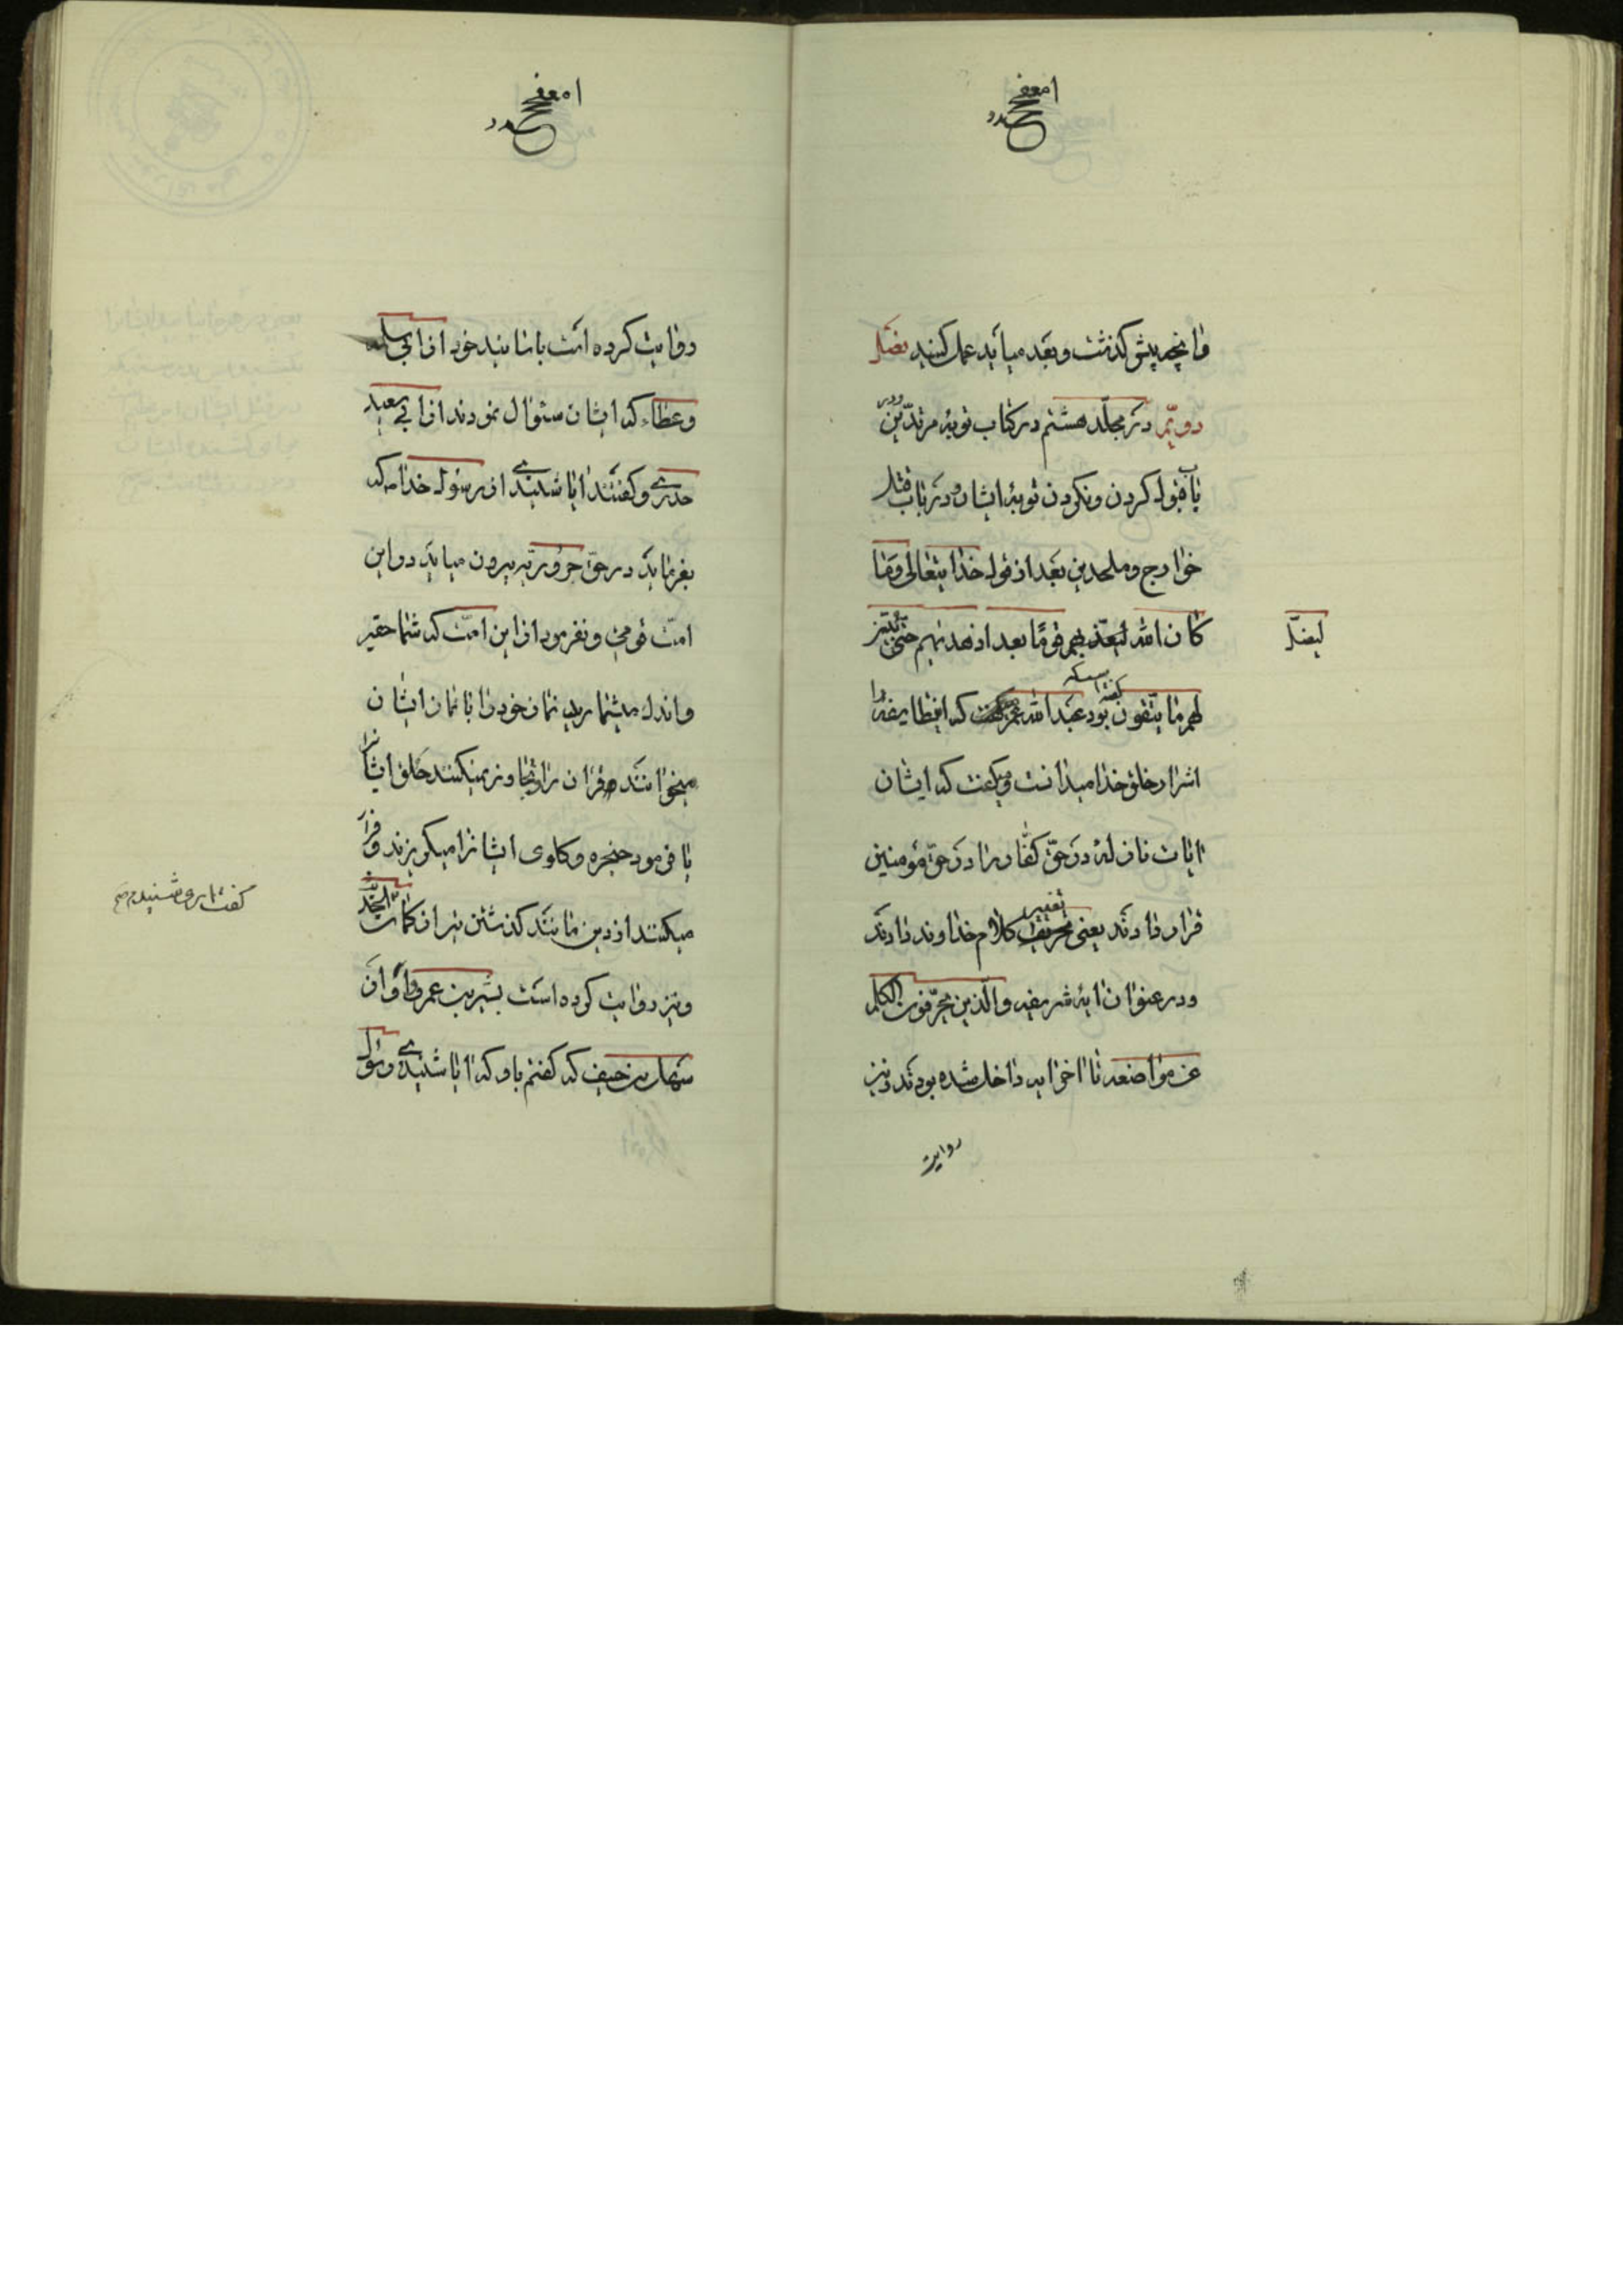 وانچه پیش گذشت و بعد میاید عمل کنید فصل
دویم در مجلد هشتم در کتاب توبهٔ مرتدین
ودر
باب قبول کردن و نکردن توبهٔ ایشان و در باب قتل
خوارج و ملحدین بعد از قول خدایتعالی وما
کان الله لیضل قوما بعد اذ هدیهم حتی یبین
لیضل
لهم ما یتقون بود عبدالله عمر که این طایفه را
اشرار خلق خدا میدانست و میگفت که ایشان
ایات نازلهٔ در حق کفار را در حق مؤمنین
قرار دادند یعنی تغییر کلام خداوند دادند
ودر عنوان ایهٔ شریفه والذین یحرفون الکلم
عن مواضعه تا اخر ایه داخل شده بودند ونیز
روایت
روایت کرده است باسانید خود از ابی سلمه
وعطاء که ایشان سئوال نمودند از ابی سعید
خدری و گفتند ایا شنیدی از رسول خدا ص که
بفرماید در حق حروریه بیرون میاید در این
امت قومی و نفرمود از این امت که شما حقیر
واندک میشمارید نماز خود را با نماز ایشان
میخوانند قران را و تجاوز نمیکند حلق ایشانرا
یا فرمود حنجره و گلوی ایشانرا میگریزند و فرار
میکنند از دین مانند گذشتن تیر از کمان
گفت اری شنیدم
ونیز روایت کرده است بشیر بن عمرو او از
سهل بن حنیف که گفتم باو که ایا شنیدی رسول